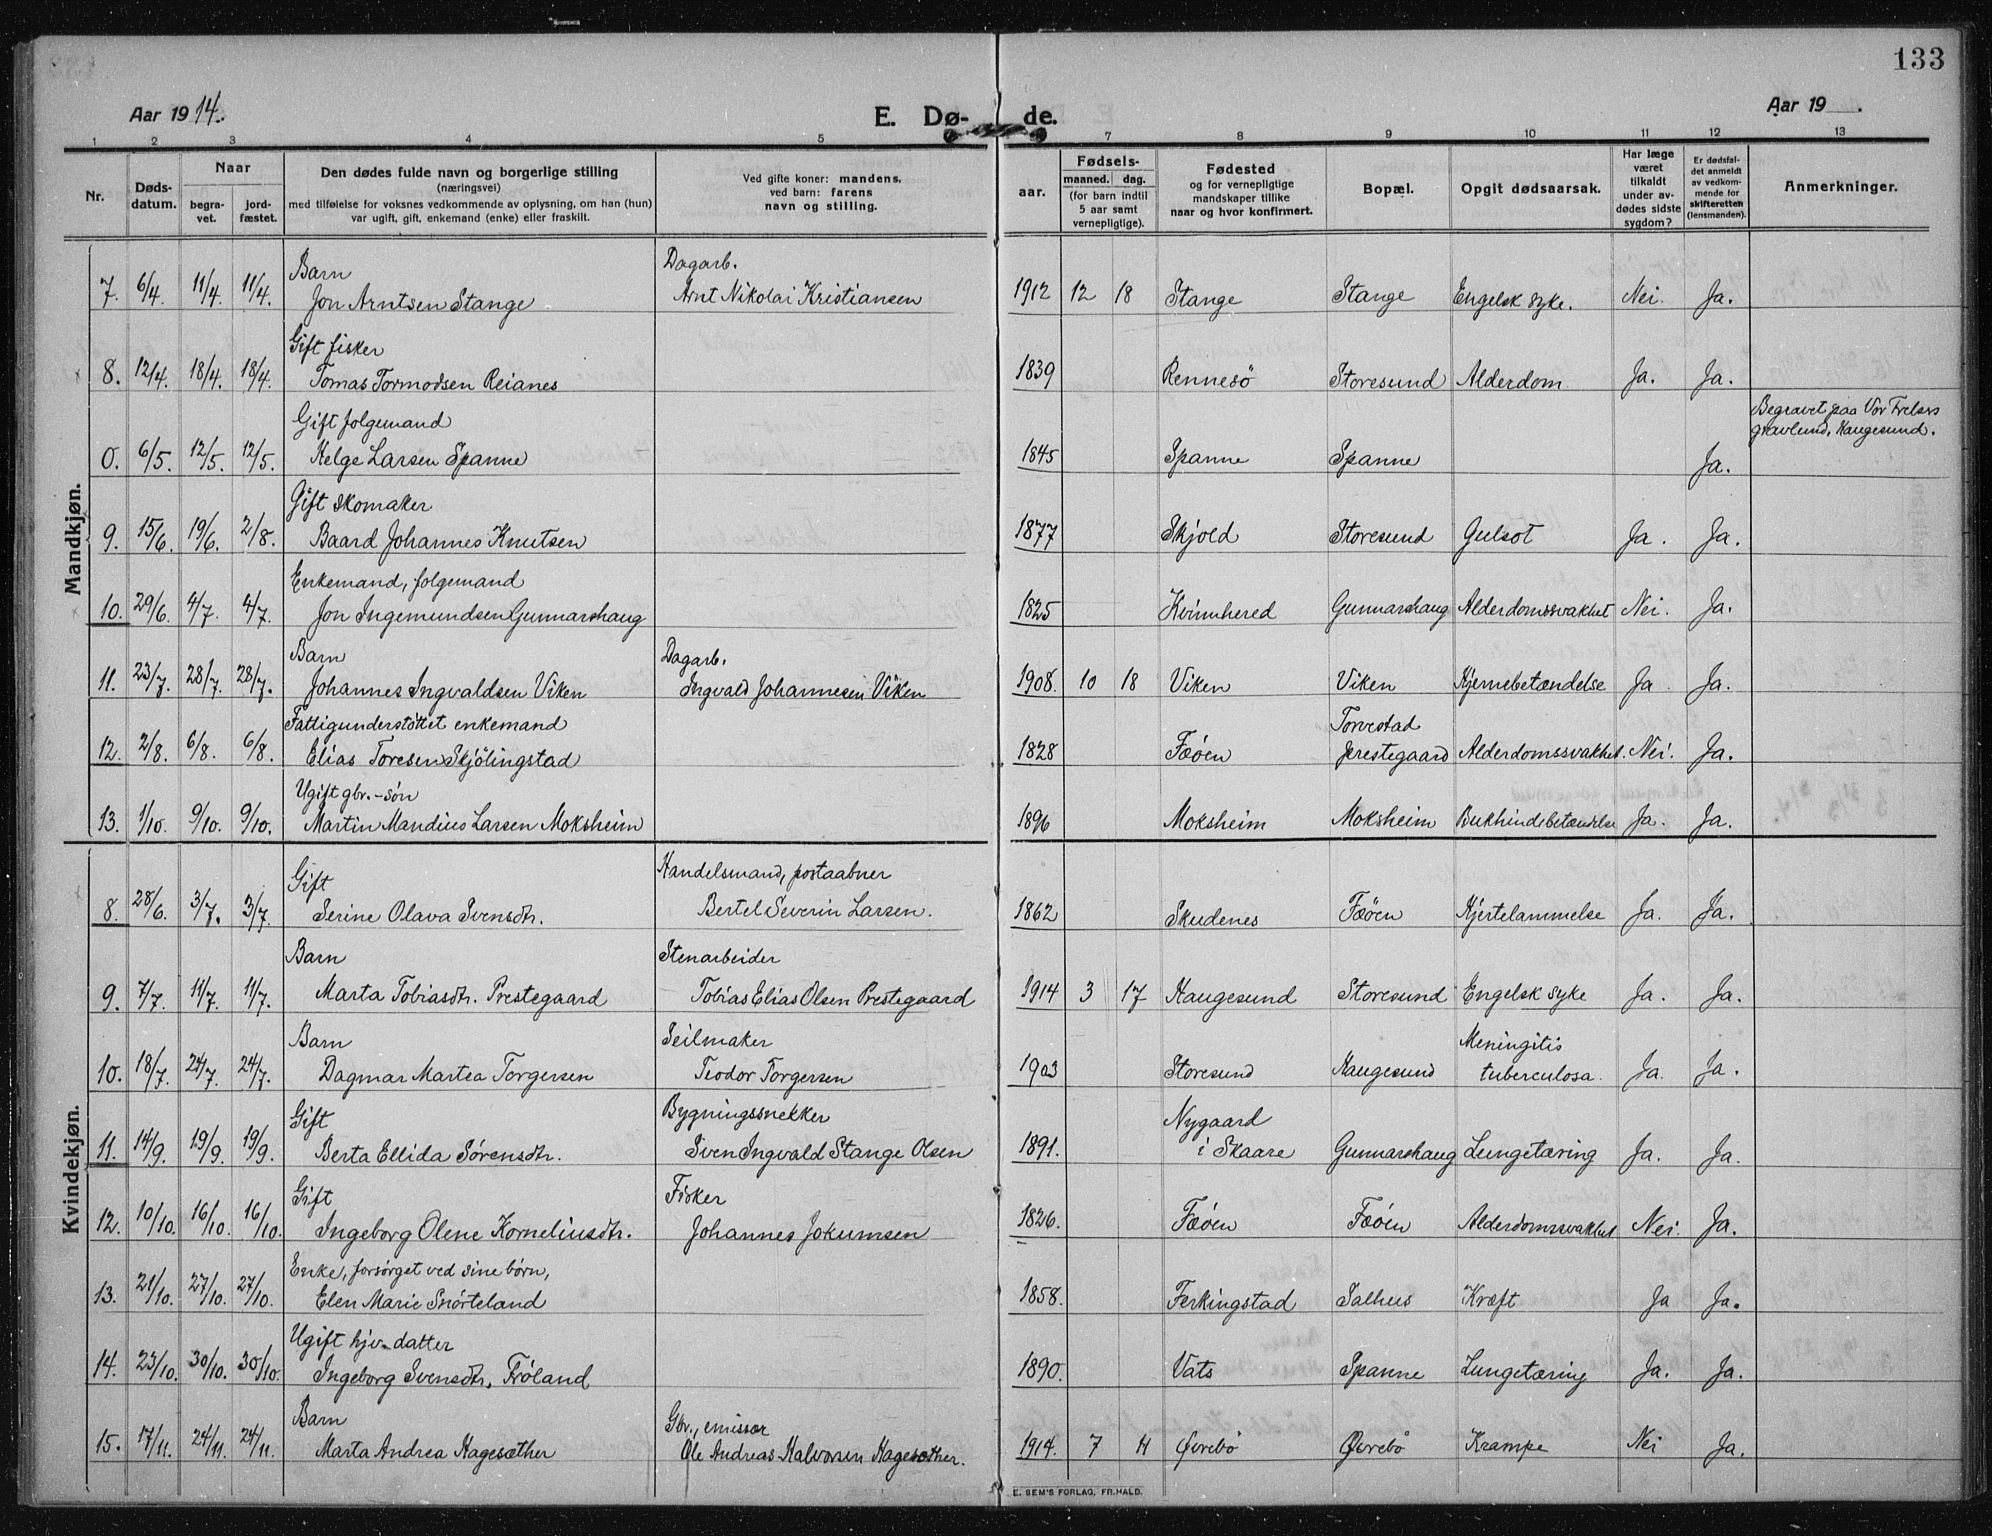 133
Aar 1914.
E. Dø-
de.
Aar 19 .
1 2 3 4 5 7 8 9 10 11 12 13
Nr.
Døds-
datum.
Naar
begra-
vet.
jord-
fæstet.
Den dødes fulde navn og borgerlige stilling
(næringsvei)
med tilføielse for voksnes vedkommende av oplysning, om han (hun)
var ugift, gift, enkemand (enke) eller fraskilt.
Ved gifte koner: mandens,
ved barn: farens
navn og stilling.
aar.
Fødsels-
maaned. dag.
(for barn indtil
5 aar samt
vernepligtige).
Fødested
og for vernepligtige
mandskaper tillike
naar og hvor konfirmert.
Bopæl.
Opgit dødsaarsak.
Har læge
været
tilkaldt
under av-
dødes sidste
sygdom?
Er dødsfal-
det anmeldt
av vedkom-
mende for
skifteretten
(lensmanden).
Anmerkninger.
Mandkjøn.
Barn Dagarb.
7. 6/4. 11/4. 11/4. Jon Arntsen Stange Arnt Nikolai Kristiansen 1912 12 18 Stange Stange Engelsk syke. Nei. Ja.
Gift fisker
8. 12/4. 18/4. 18/4. Tomas Tormodsen Reianes 1839 Rennesö Storesund Alderdom Ja. Ja.
Gift folgemand Begravet paa Vor Frelsers
gravlund, Haugesund.
0. 6/5. 12/5. 12/5. Helge Larsen Spanne 1845 Spanne Spanne Ja.
Gift skomaker
9. 15/6. 19/6. 2/8. Baard Johannes Knutsen 1877 Skjold Storesund Gulsot Ja. Ja.
Enkemand, folgemand
10. 29/6. 4/7. 4/7. Jon Ingemundsen Gunnarshaug 1825 Kvinnhered Gunnarshaug Alderdomssvakhet Nei. Ja.
Barn Dagarb.
11. 23/7. 28/7. 28/7. Johannes Ingvaldsen Viken Ingvald Johannesen Viken 1908. 10 18 Viken Viken Hjernebetændelse Ja. Ja.
Fattigunderstöttet enkemand Torvestad
12. 2/8. 6/8. 6/8. Elias Toresen Skjölingstad 1828 Fæøen prestegaard Alderdomssvakhet. Nei. Ja.
Ugift gbr.-sön
13. 1/10. 9/10. 9/10. Martin Mandius Larsen Moksheim 1896 Moksheim Moksheim Bukhindebetændelse Ja. Ja.
Kvindekjøn.
Gift Handelsmand, postaabner
8. 28/6. 3/7. 3/7. Serine Olava Svensdtr. Bertel Severin Larsen. 1862 Skudenes Fæøen Hjertelammelse Ja. Ja.
Barn Stenarbeider
9. 7/7. 11/7. 11/7. Marta Tobiasdtr. Prestegaard Tobias Elias Olsen Prestegaard 1914 3 17 Haugesund Storesund Engelsk syke Ja. Ja.
Barn Seilmaker Meningitis
10. 18/7. 24/7. 24/7. Dagmar Martea Torgersen Teodor Torgersen 1903 Storesund Haugesund tuberculosa. Ja. Ja.
Gift Bygningssnekker Nygaard
11. 14/9. 19/9. 19/9. Berta Ellida Sörensdtr. Sven Ingvald Stange Olsen 1891. i Skaare Gunnarshaug Lungetæring Ja. Ja.
Gift Fisker
12. 10/10. 16/10. 16/10. Ingeborg Olene Korneliusdtr. Johannes Jokumsen 1826. Fæøen Fæøen Alderdomssvakhet Nei. Ja.
Enke, forsörget ved sine børn,
13. 21/10. 27/10. 27/10. Elen Marie Snörteland 1858. Ferkingstad Salhus Kræft Ja Ja.
Ugift hjv. datter
14. 23/10. 30/10. 30/10. Ingeborg Svensdtr. Fröland 1890. Vats Spanne Lungetæring Ja. Ja.
Barn Gbr., emissær
15. 17/11. 24/11. 24/11. Marta Andrea Hagesæther Ole Andreas Halvorsen Hagesæther. 1914. 7 11 Øvrebö Øvrebö Krampe Nei Ja.
E. SEM'S FORLAG, FR.HALD.